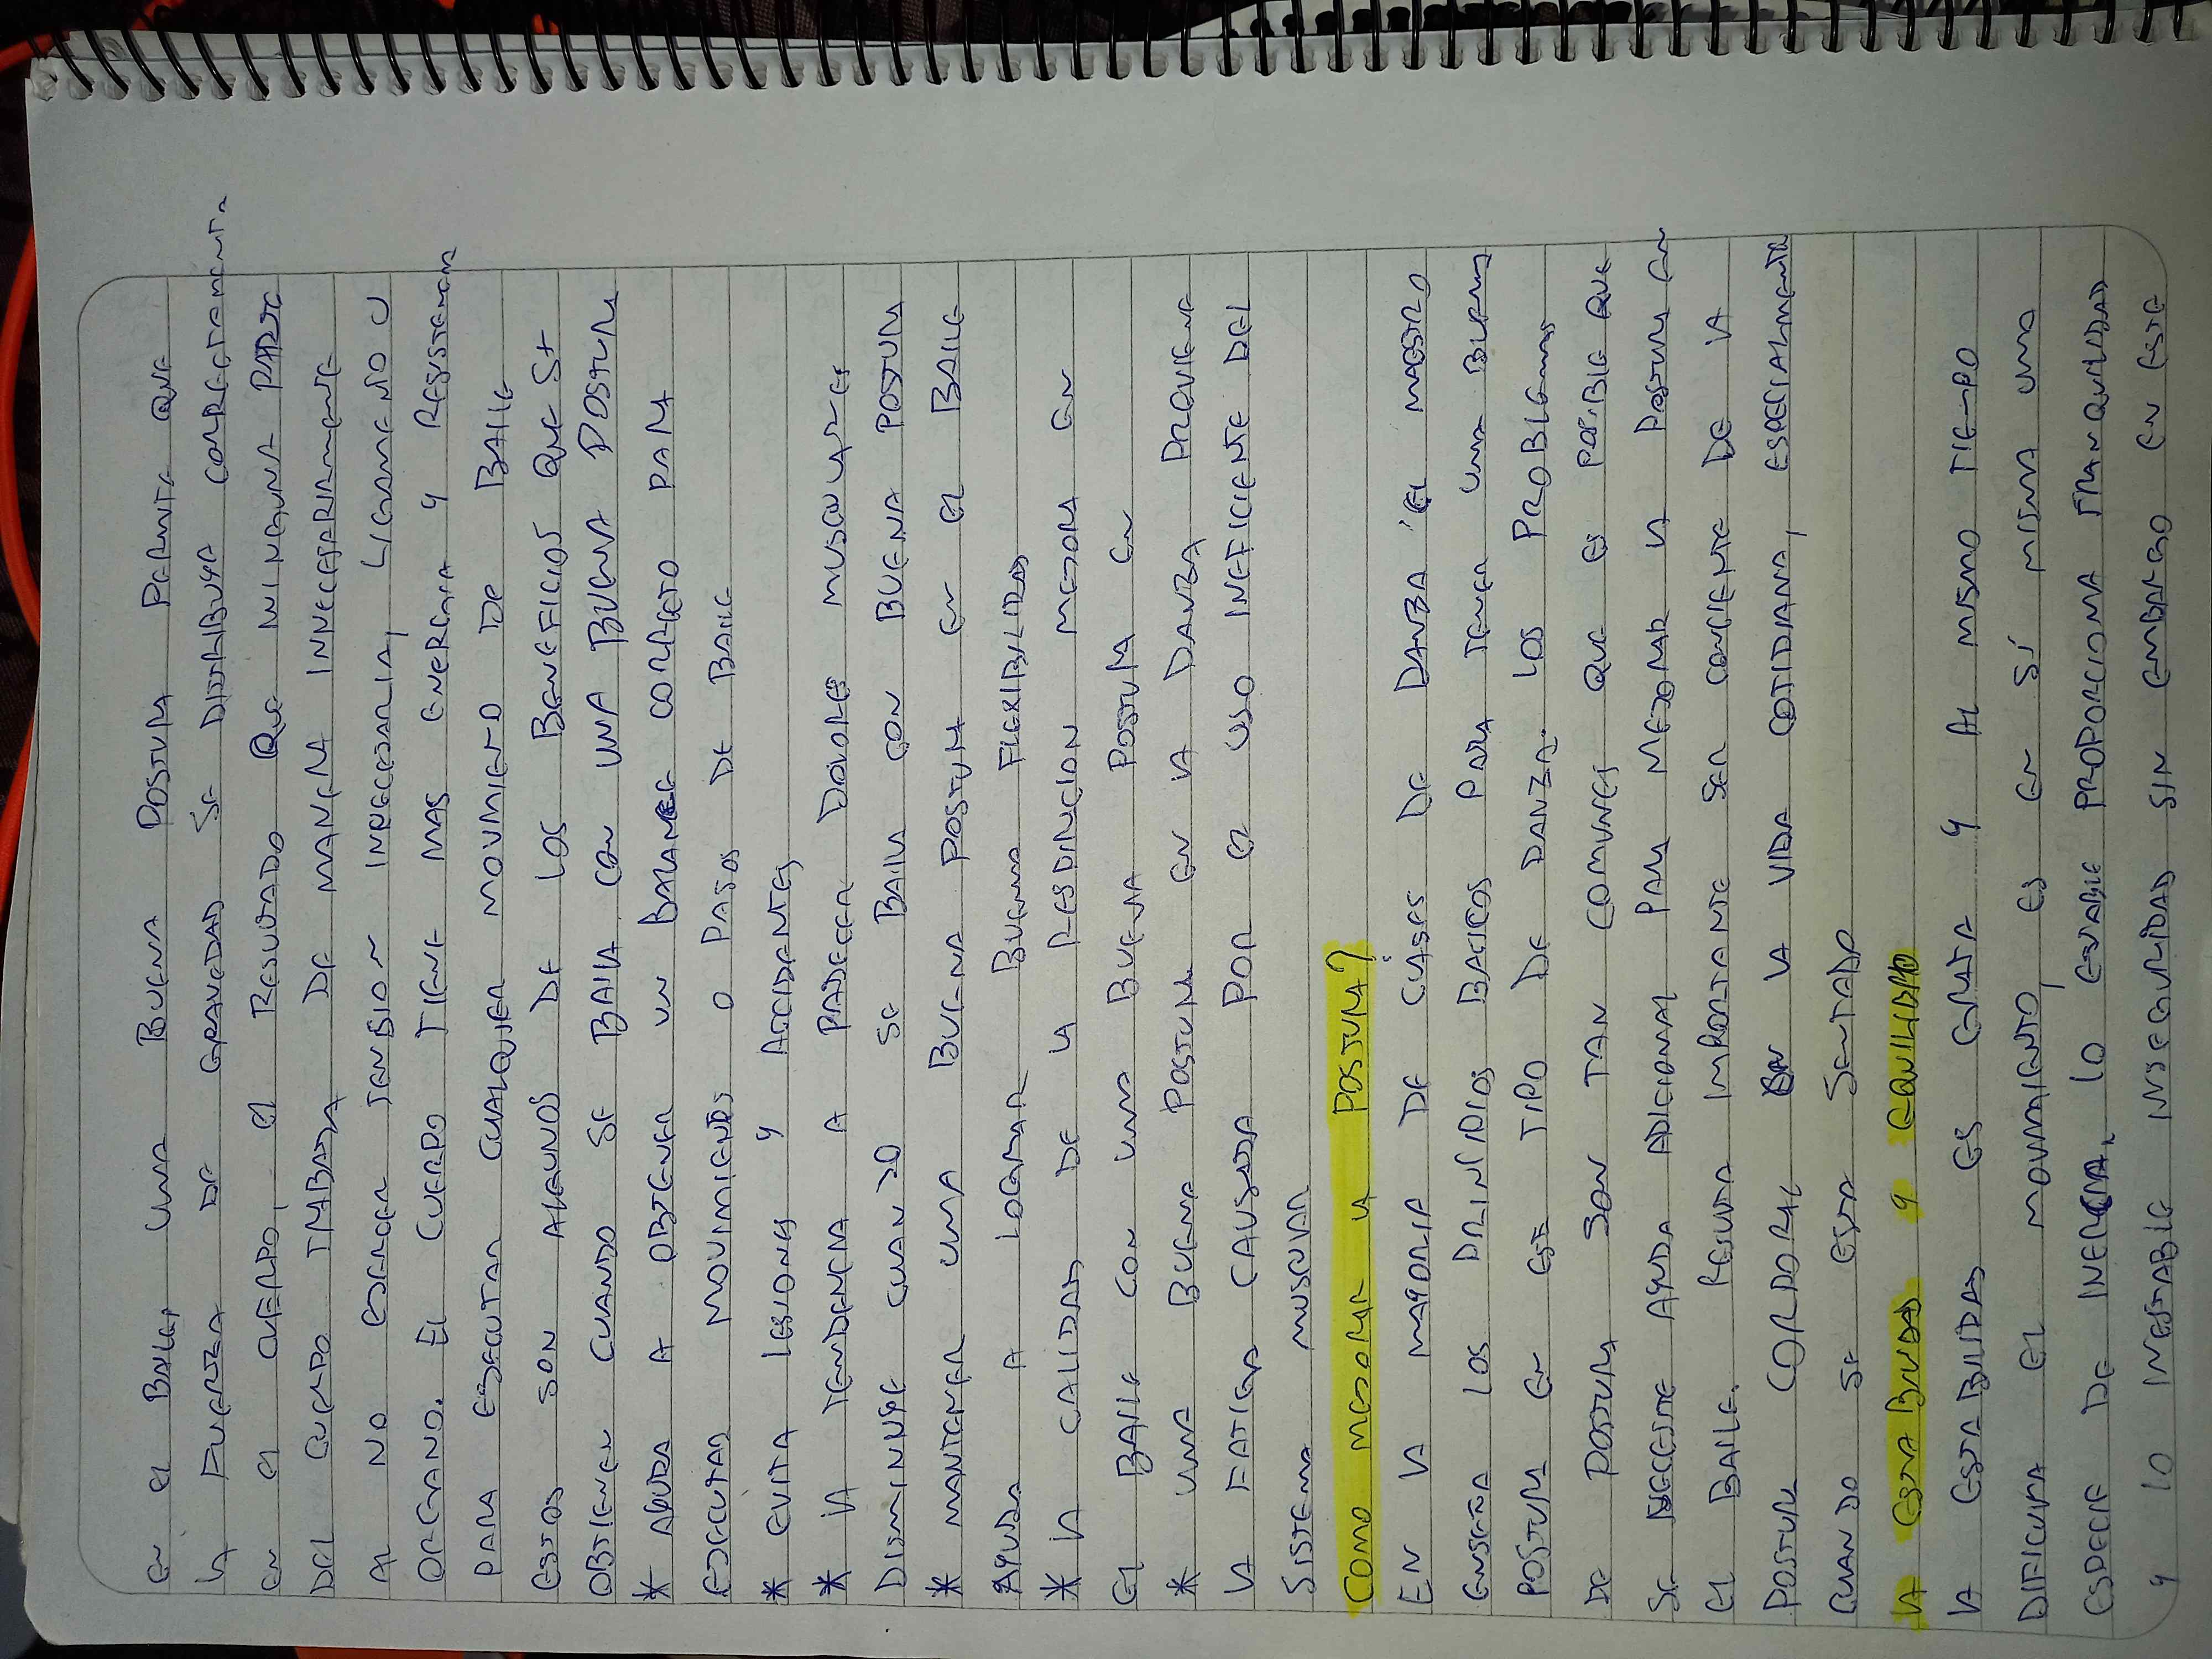 EN EL BAILE, UNA BUENA POSTURA PERMITE QUE
LA FUERZA DE GRAVEDAD SE DISTRIBUYA CORRECTAMENTE
EN EL CUERPO, EL RESULTADO QUE NINGUNA PARTE
DEL CUERPO TRABAJA DE MANERA INNECESARIAMENTE
AL NO EJERCER TENSION INNECESARIA, LIGAMENTO U
ORGANO. EL CUERPO TIENE MAS ENERGIA Y RESISTENCIA
PARA EJECUTAR CUALQUIER MOVIMIENTO DE BAILE
ESTOS SON ALGUNOS DE LOS BENEFICIOS QUE SE
OBTIENEN CUANDO SE BAILA CON UNA BUENA POSTURA
* AYUDA A OBTENER UN BALANCE CORRECTO PARA
EJECUTAR MOVIMIENTOS O PASOS DE BAILE
* EVITA LESIONES Y ACCIDENTES
* LA TENDENCIA A PADECER DOLORES MUSCULARES
DISMINUYE CUANDO SE BAILA CON BUENA POSTURA
* MANTENER UNA BUENA POSTURA EN EL BAILE
AYUDA A LOGRAR BUENA FLEXIBILIDAD
* LA CALIDAD DE LA RESDINCION MEJORA EN
EL BAILE CON UNA BUENA POSTURA EN
* UNA BUENA POSTURA EN LA DANZA PREVIENE
LA FATIGA CAUSADA POR EL USO INEFICIENTE DEL
SISTEMA MUSCULAR
COMO MEJORAR LA POSTURA?
EN LA MAYORIA DE CLASES DE DANZA EL MAESTRO
ENSEÑA LOS PRINCIPIOS BACICOS PARA TENER UNA BUENA
POSTURA EN ESE TIPO DE DANZA. LOS PROBLEMAS
DE POSTURA SON TAN COMUNES QUE ES POSIBLE QUE
SE NECESITE AYUDA ADICIONAL PARA MEJORAR LA POSTURA EN
EL BAILE. RESULTA IMPORTANTE SER CONCIENTE DE LA
POSTURA CORPORAL EN LA VIDA COTIDIANA, ESPECIALMENTE
CUANDO SE ESTA SENTADO
LA ESTABILIDAD Y EQUILIBRIO
LA ESTABILIDAD ES GRATA Y AL MISMO TIEMPO
DIFICULTA EL MOVIMIENTO, ES EN SÍ MISMA UNA
ESPECIE DE INERCIA. LO ESTABLE PROPORCIONA TRANQUILIDAD
Y LO INESTABLE INSEGURIDAD SIN EMBARGO EN ESTE